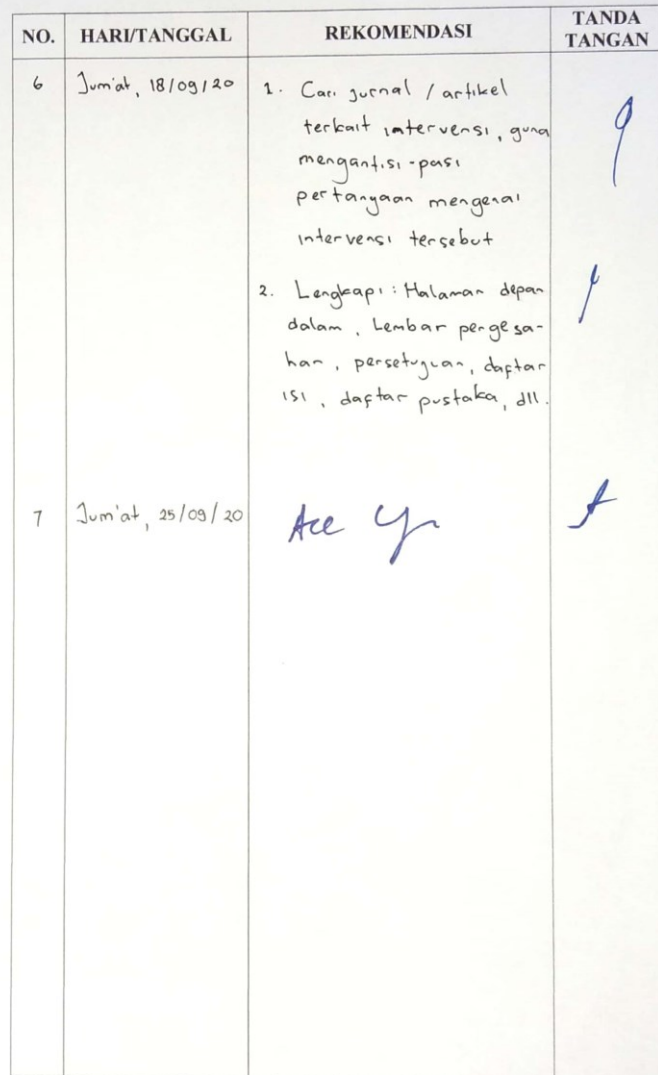 NO. HARI/TANGGAL REKOMENDASI TANDA TANGAN
6 Jum'at, 18/09/20 1. Cari jurnal / artikel
terkait intervensi, guna
mengantisi-pasi
pertanyaan mengenai
intervensi tersebut
2. Lengkapi : Halaman depan
dalam, Lembar pengesa-
han, persetujuan, daftar
isi, daftar pustaka, dll.
7 Jum'at, 25/09/20 Acc